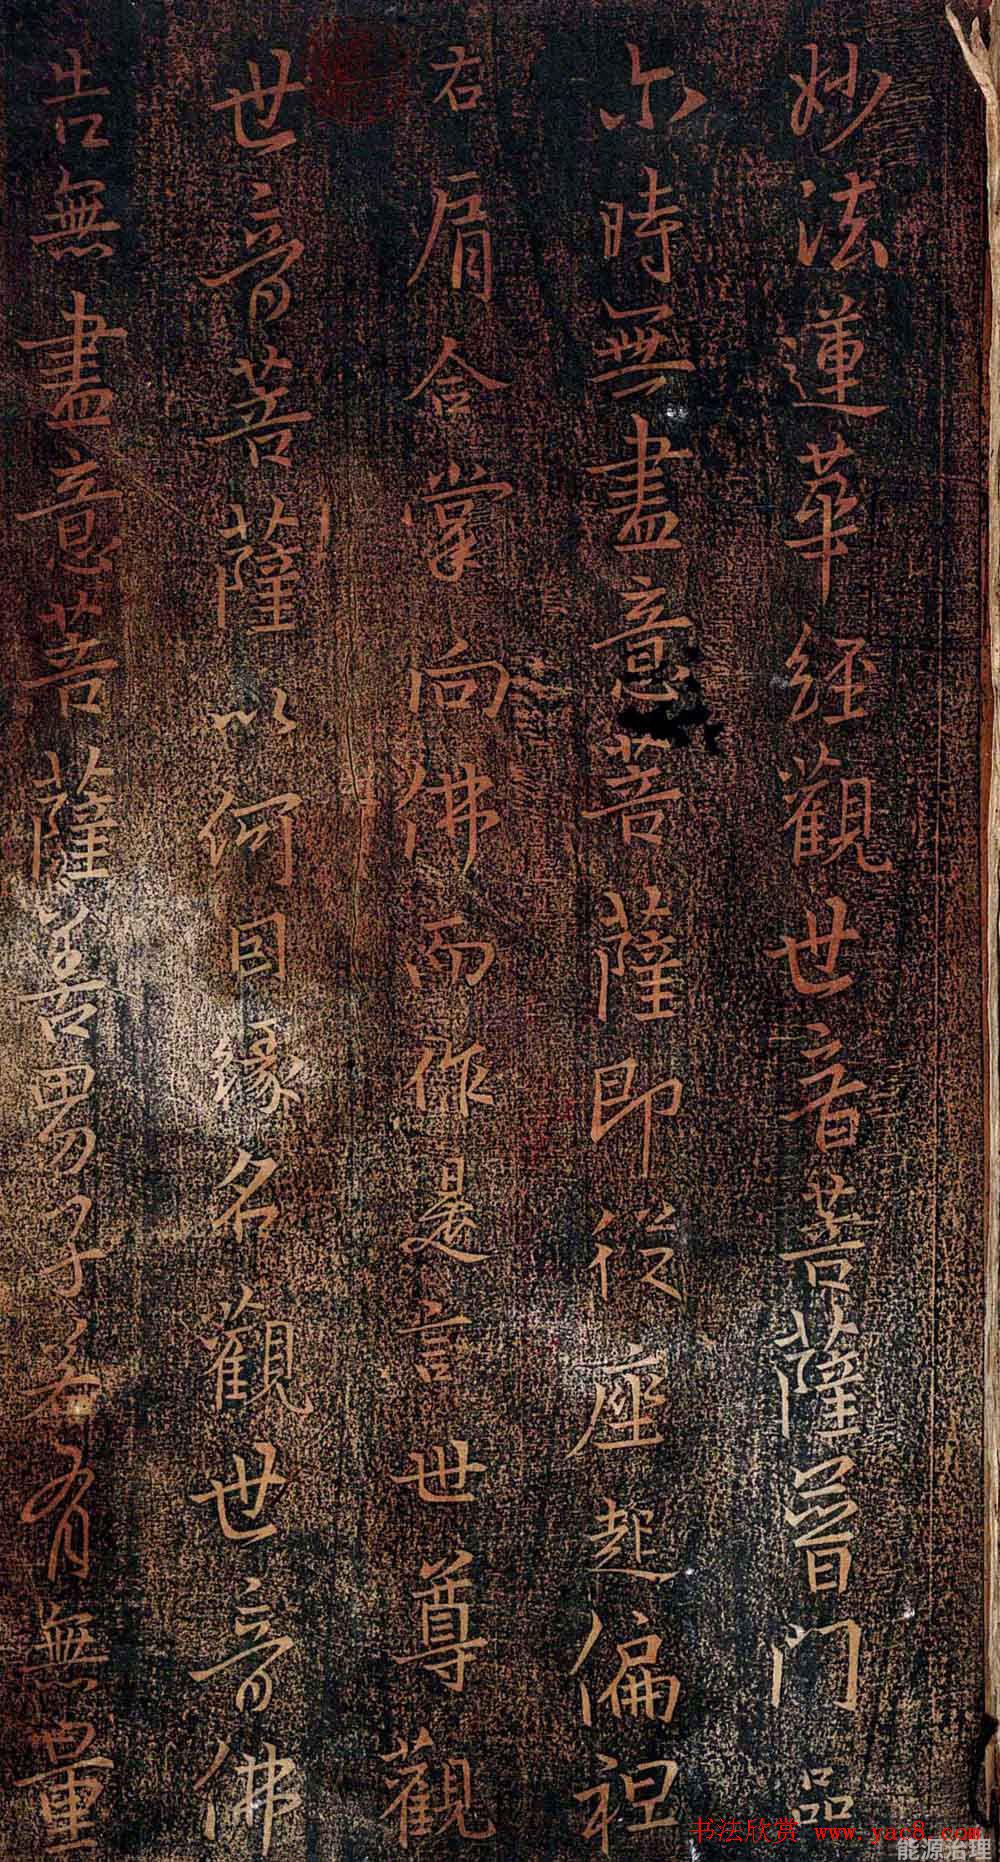 妙法蓮華經觀世音菩薩普門品
尒時無盡意菩薩即從座起偏袒
右肩合掌向佛而作是言世尊觀
世音菩薩以何因緣名觀世音佛
告無盡意菩薩善男子若有無量
书法欣赏 www.yac8.com
能源治理